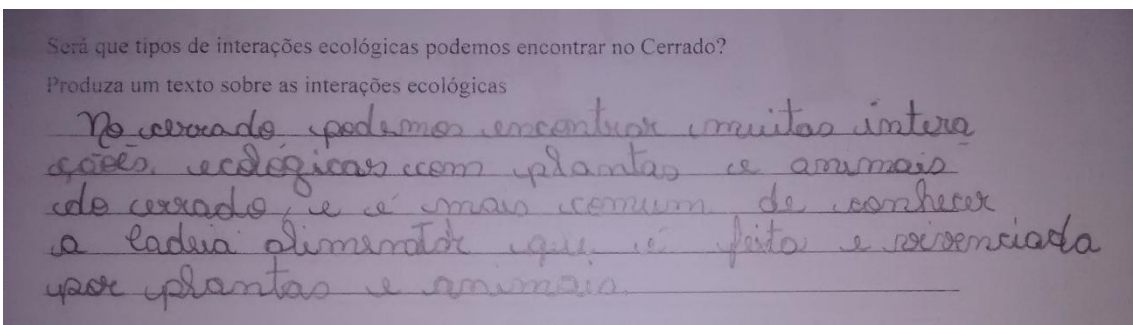 Será que tipos de interações ecológicas podemos encontrar no Cerrado?
Produza um texto sobre as interações ecológicas
No cerrado podemos encontrar muitas intera
ções ecológicas com plantas e animais
do cerrado, e é mais comum de conhecer
a cadeia alimentar que é feita e vivenciada
por plantas e animais.